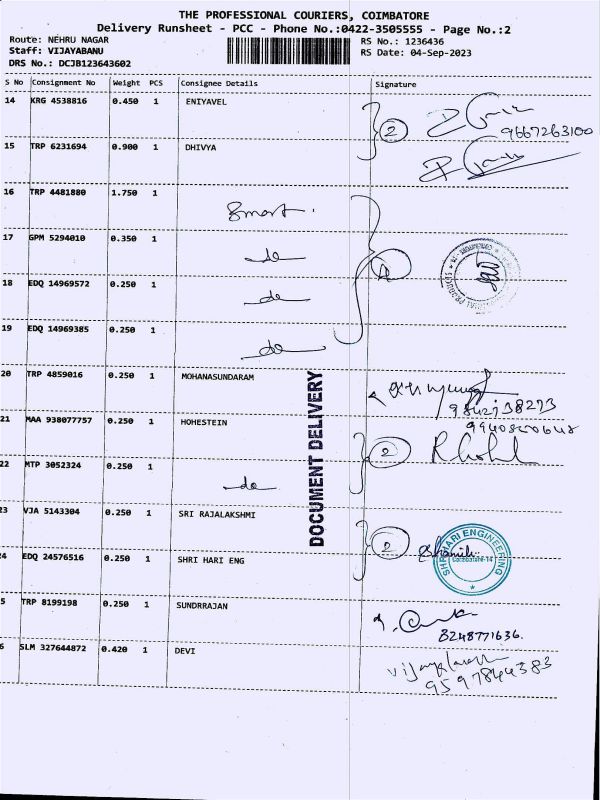 THE PROFESSIONAL COURIERS, COIMBATORE
Delivery Runsheet - PCC - Phone No.:0422-3505555 - Page No.:2
Route: NEHRU NAGAR RS No.: 1236436
Staff: VIJAYABANU RS Date: 04-Sep-2023
DRS No.: DCJB123643602
S No Consignment No Weight PCS Consignee Details Signature
14 KRG 4538816 0.450 1 ENIYAVEL 2
9667263100
15 TRP 6231694 0.900 1 DHIVYA
16 TRP 4481880 1.750 1 Smart.
17 GPM 5294010 0.350 1 do
18 EDQ 14969572 0.250 1 do
19 EDQ 14969385 0.250 1 do
20 TRP 4859016 0.250 1 MOHANASUNDARAM
9842738273
21 MAA 938077757 0.250 1 HOHESTEIN 2
22 MTP 3052324 0.250 1 do
23 VJA 5143304 0.250 1 SRI RAJALAKSHMI 2
24 EDQ 24576516 0.250 1 SHRI HARI ENG
SHRI HARI ENGINEERING
5 TRP 8199198 0.250 1 SUNDRRAJAN
8248771636.
6 SLM 327644872 0.420 1 DEVI
9597844383
DOCUMENT DELIVERY